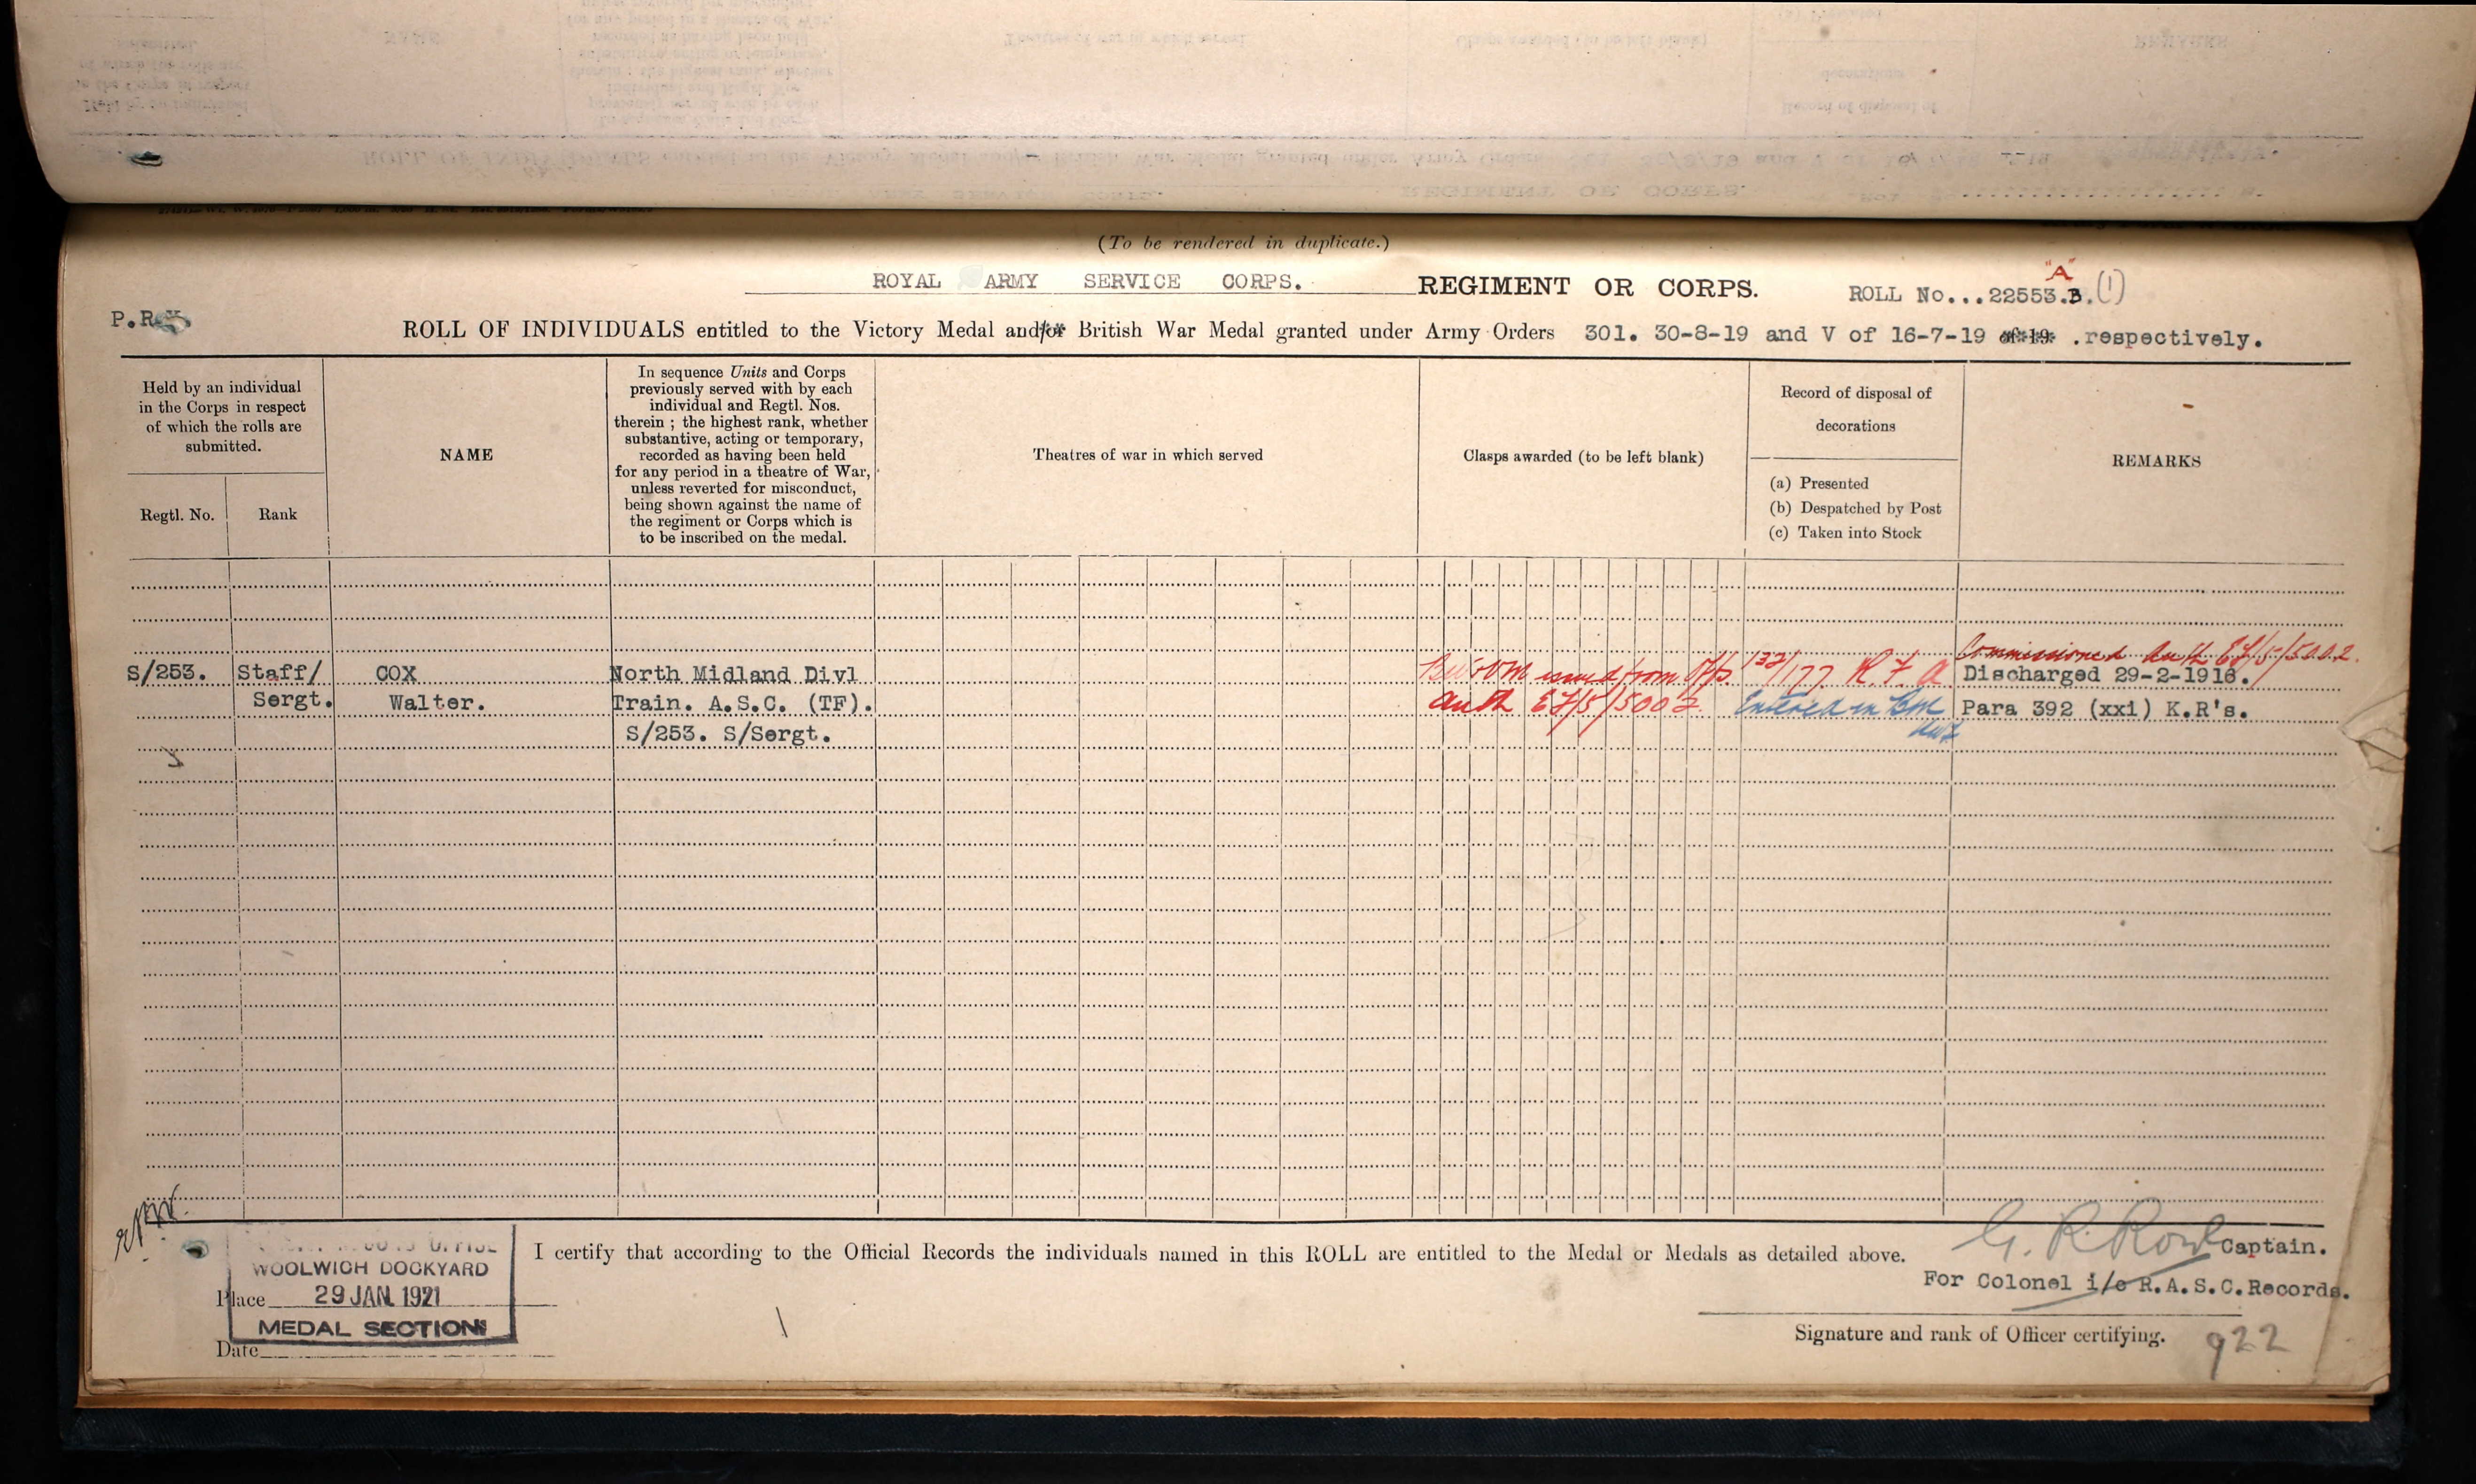 (To be rendered in duplicate.)
ROYAL ARMY SERVICE CORPS. REGIMENT OR CORPS. ROLL No...22553.B. "A" (1)
P.R.
ROLL OF INDIVIDUALS entitled to the Victory Medal and/or British War Medal granted under Army Orders 301. 30-8-19 and V of 16-7-19 of 19 .respectively.
Held by an individual
in the Corps in respect
of which the rolls are
submitted.
Regtl. No.
Rank
NAME
In sequence Units and Corps
previously served with by each
individual and Regtl. Nos.
therein ; the highest rank, whether
substantive, acting or temporary,
recorded as having been held
for any period in a theatre of War,
unless reverted for misconduct,
being shown against the name of
the regiment or Corps which is
to be inscribed on the medal.
Theatres of war in which served
Clasps awarded (to be left blank)
Record of disposal of
decorations
(a) Presented
(b) Despatched by Post
(c) Taken into Stock
REMARKS
Commissioned Auth EF/5/5002.
S/253. Staff/ COX North Midland Divl issued from Off/s 132/177 R F A Discharged 29-2-1916.
Sergt. Walter. Train. A.S.C. (TF). auth EF/5/5002 Entered in Discharged Para 392 (xxi) K.R's.
S/253. S/Sergt.
I certify that according to the Official Records the individuals named in this ROLL are entitled to the Medal or Medals as detailed above. G. R. Captain.
WOOLWICH DOCKYARD
For Colonel i/c R.A.S.C. Records.
Place 29 JAN. 1921
MEDAL SECTION
Signature and rank of Officer certifying. 922
Date